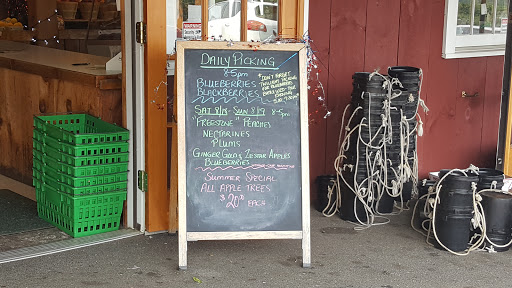 DAILY PICKING
8-5pm
BLUEBERRIES
BLACKBERRIES
*DON'T FORGET
SAT 8/18 - SUN 8/19 8-5pm
"FREESTONE" PEACHES
NECTARINES
PLUMS
GINGER GOLD & ZESTAR APPLES
BLUEBERRIES
SUMMER SPECIAL
ALL APPLE TREES
$20.00 EACH